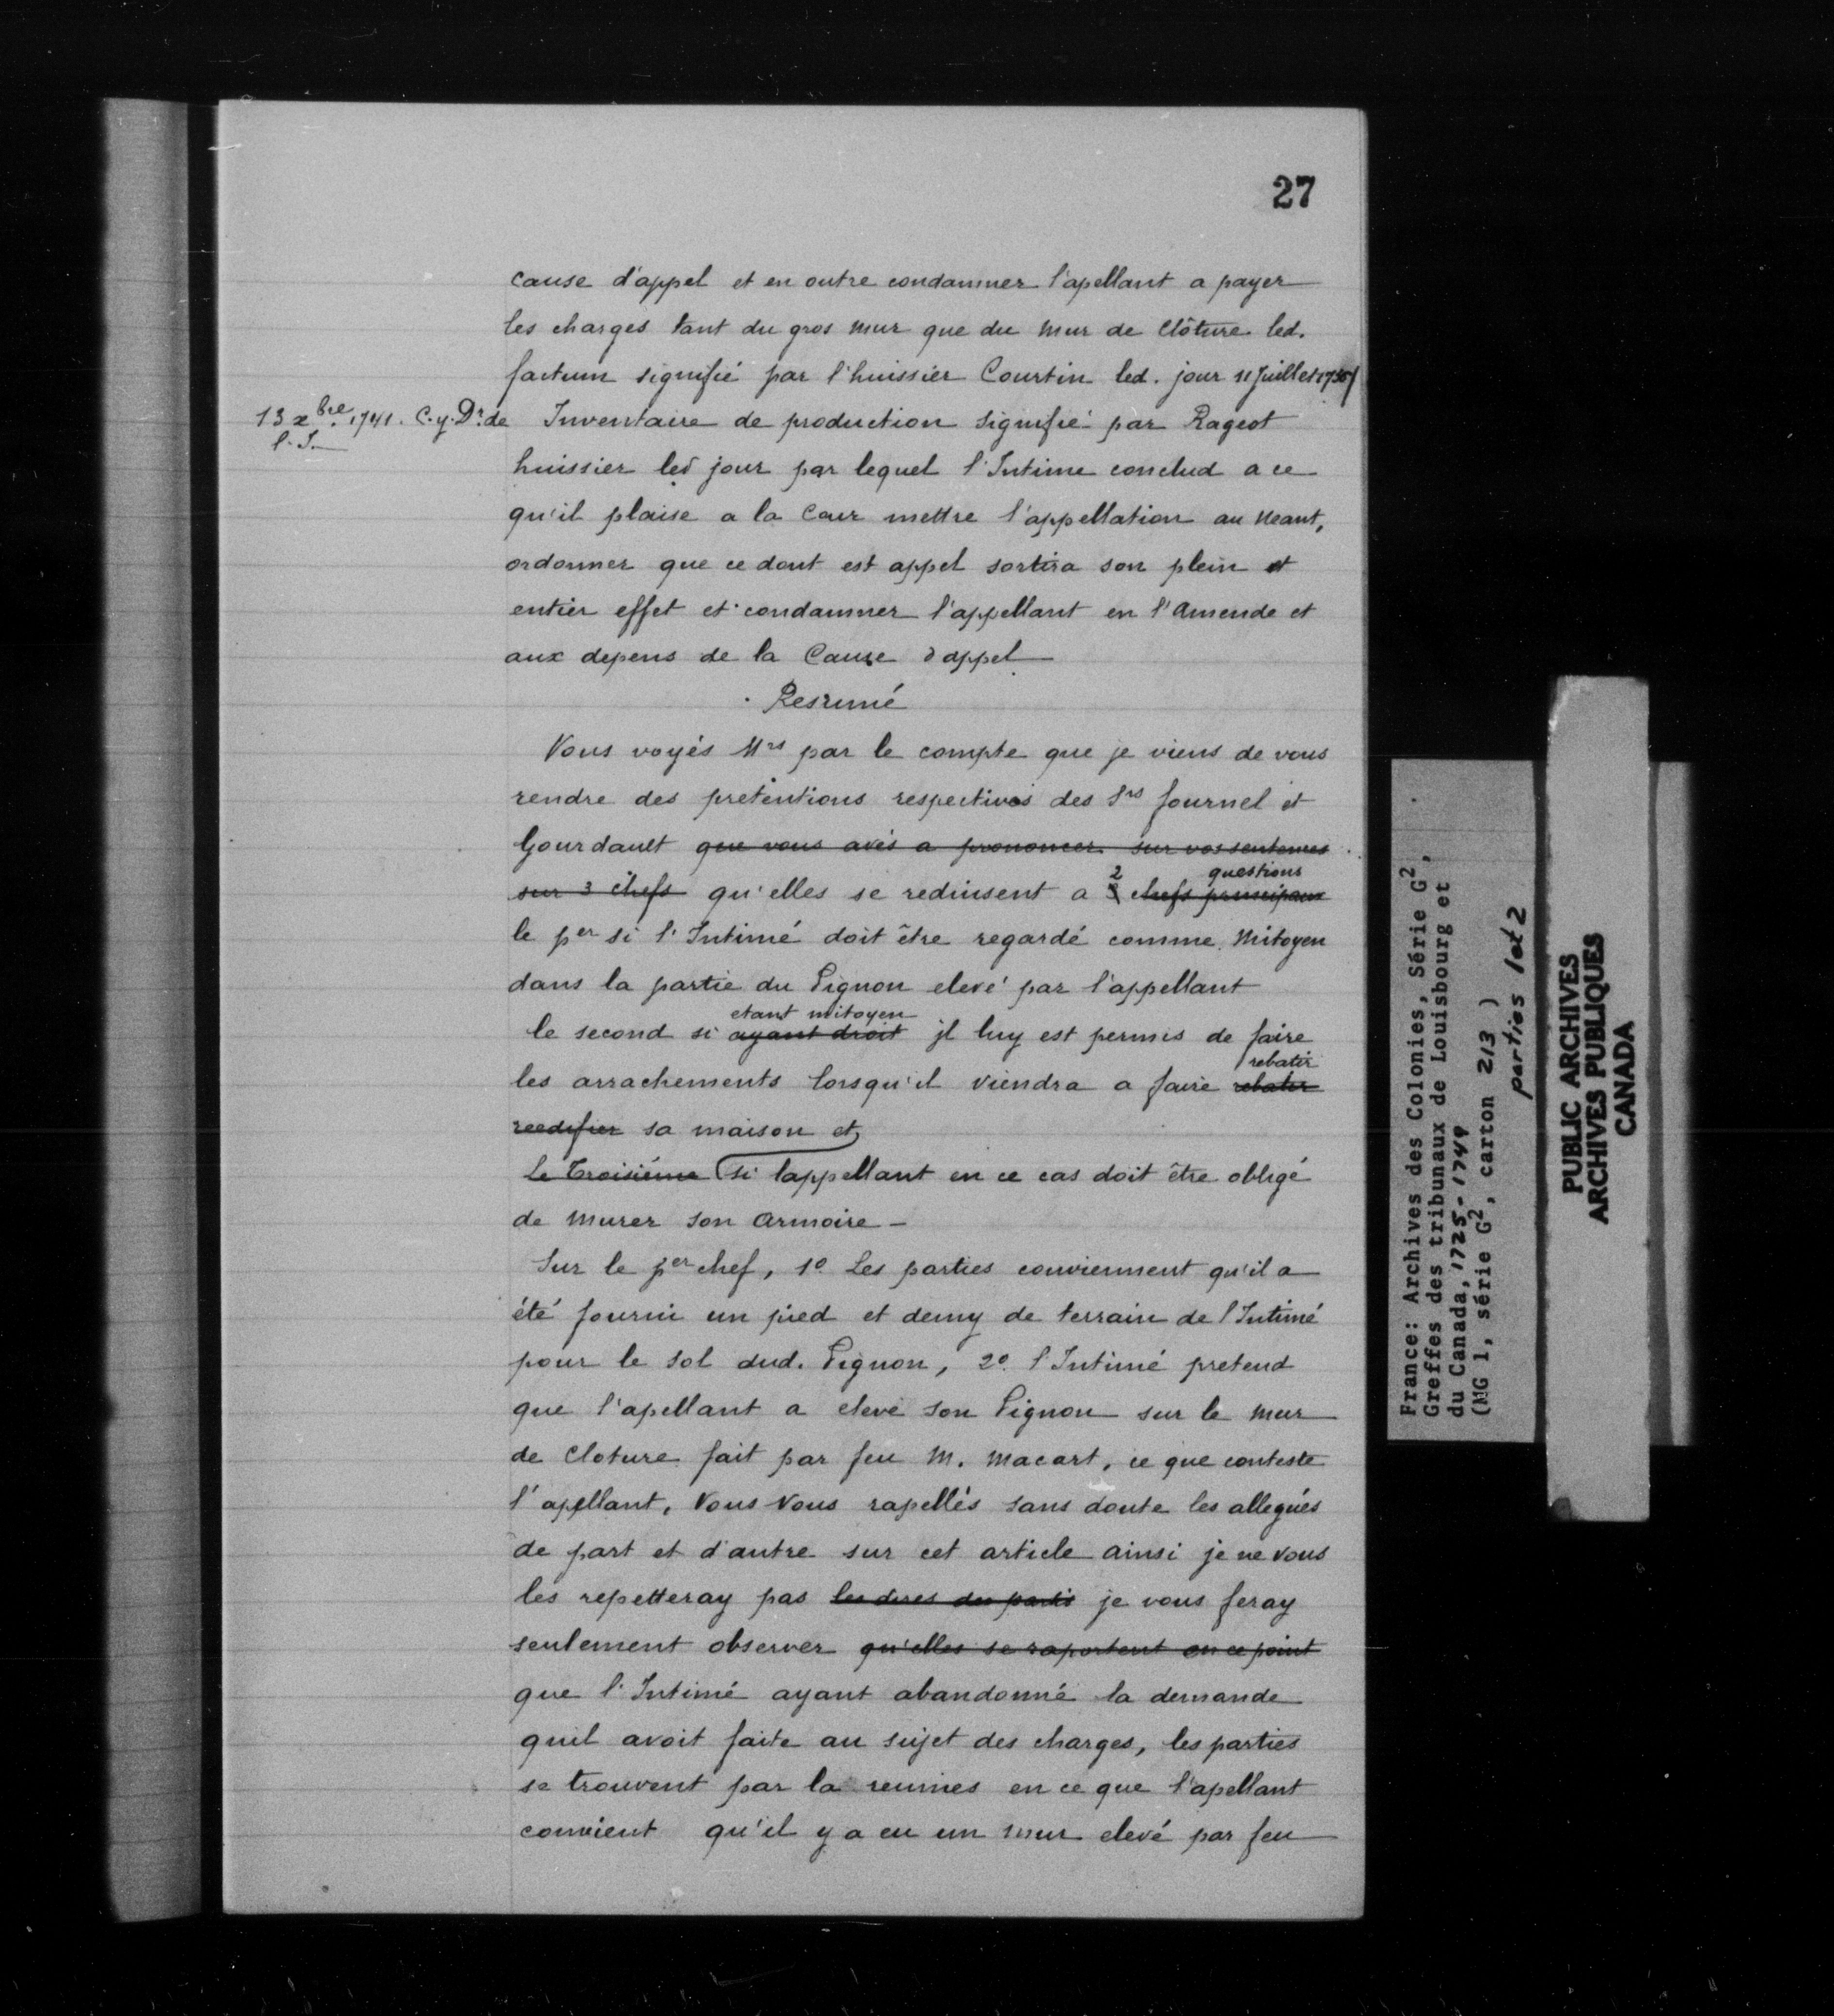 27
cause d'appel et en outre condamner l'apellant a payer
les charges tant du gros mur que du mur de Clôture led.
factum signifié par l'huissier Courtin led. jour 11 Juillet
13 xbre. 1741. C.y. Dr. de
Inventaire de production signifié par Rageot
huissier led jour par lequel l'Intime conclud a ce
qu'il plaise a la Cour mettre l'appellation au Neant,
ordonner que ce dont est appel sortira son plein et
entier effet et condamner l'appellant en l'Amende et
aux depens de la Cause d'appel
Resumé
Vous voyés Mrs par le compte que je viens de vous
rendre des pretentions respectives des Srs fournel et
Gourdault que vous avés a prononcer sur vos sentences
2 questions
sur 3 chefs qu'elles se reduisent a 3 chefs principaux
le per si l'Intimé doit être regardé comme Mitoyen
dans la partie du Pignon elevé par l'appellant
etant mitoyen
le second si ayant droit jl luy est permis de faire
rebatir
les arrachements lorsqu'il viendra a faire rebatir
reedifier sa maison et
Le Troisiéme si lappellant en ce cas doit être obligé
de murer son Armoire -
Sur le per chef, 1o. Les parties conviennent qu'il a
été fourni un pied et demy de terrain de l'Intimé
pour le sol dud. Pignon, 2o. l'Intimé pretend
que l'apellant a elevé son Pignon sur le mur
de Cloture fait par feu M. Macart, ce que conteste
l'apellant, Vous Vous rapellés sans doute les allegués
de part et d'autre sur cet article ainsi je ne vous
les repetteray pas les dires des partis je vous feray
seulement observer qu'elles se raportent en ce point
que l'Intimé ayant abandonné la demande
quil avoit faite au sujet des charges, les parties
se trouvent par la reunies en ce que l'apellant
convient qu'il y a eu un mur elevé par feu
France: Archives des Colonies, Série G2,
Greffes des tribunaux de Louisbourg et
du Canada, 1725-1749
(MG 1, série G2, carton 213 )
parties 1 et 2
PUBLIC ARCHIVES
ARCHIVES PUBLIQUES
CANADA